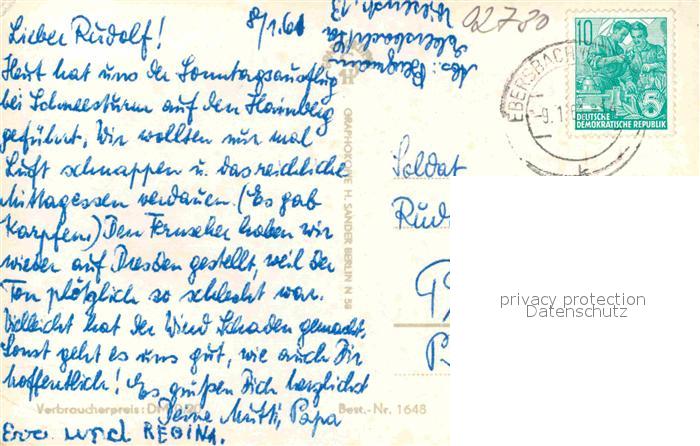 Lieber Rudolf! 8/1.61
Heut hat uns der Sonntagsausflug
bei Schneesturm auf den Hainberg
geführt. Wir wollten nur mal
Luft schnappen u. das reichliche
Mittagessen verdauen. (Es gab
Karpfen.) Den Fernseher haben wir
wieder auf Dresden gestellt, weil der
Ton plötzlich so schlecht war.
Vielleicht hat der Wind Schaden gemacht.
Sonst geht es uns gut, wie auch Dir
hoffentlich! Es grüßen Dich herzlichst
Deine Mutti, Papa
Eva und REGINA.
Verbraucherpreis: DM 0,20
Best.-Nr. 1648
GRAPHOKARTE H. SANDER BERLIN N 58
Abs.: Bergmann
Ebersbach/Sa.
13
02730
EBERSBACH
-9.1.61
10
5
DEUTSCHE
DEMOKRATISCHE REPUBLIK
Soldat
privacy protection
Datenschutz